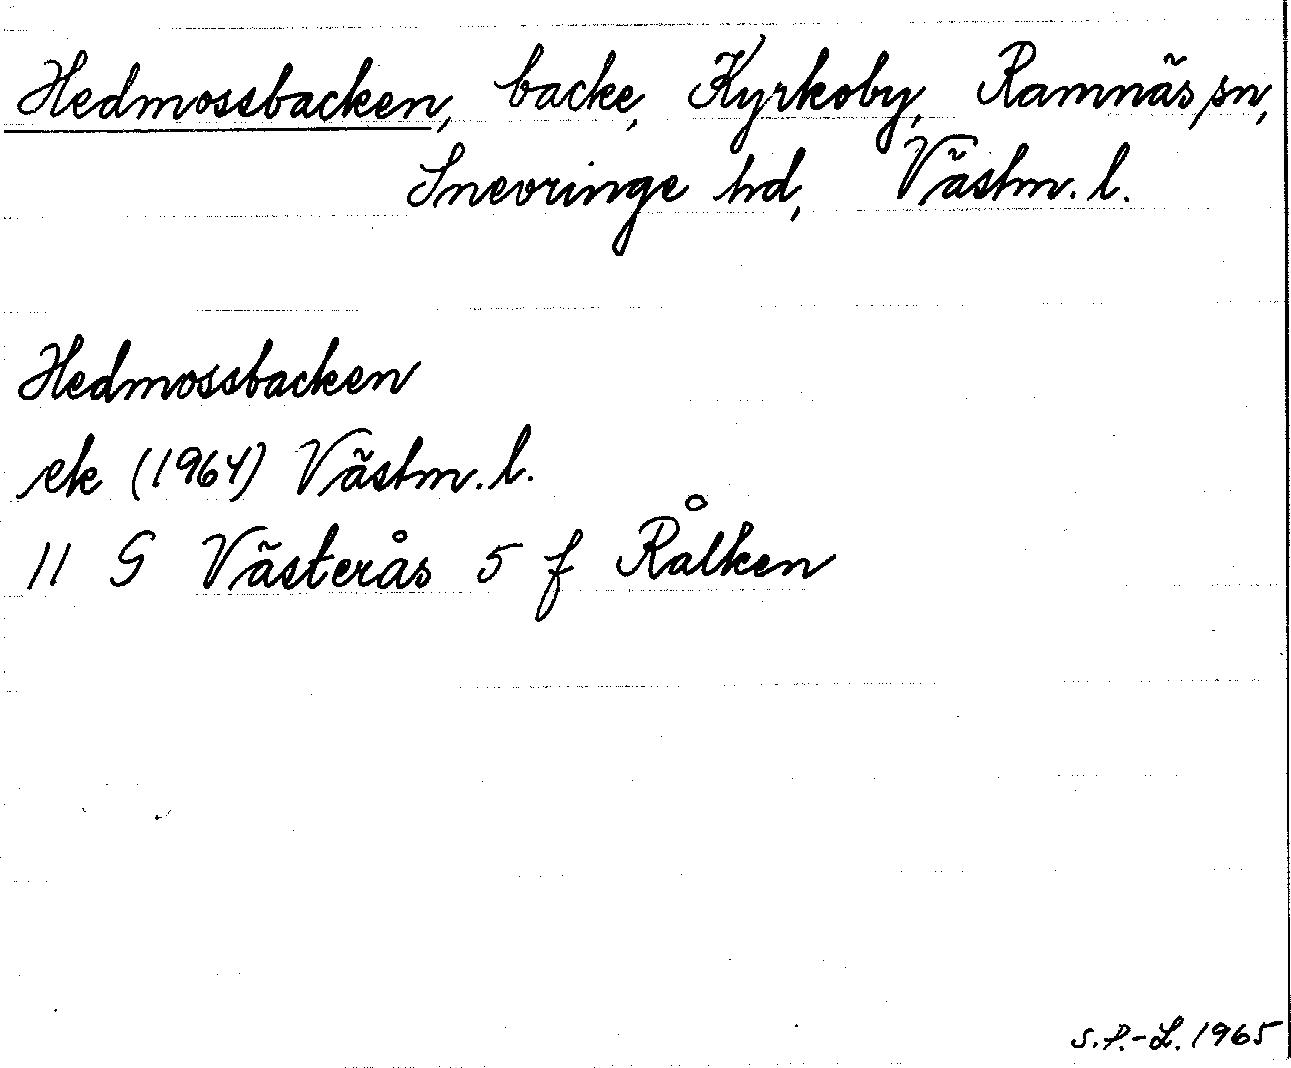 Hedmossbacken, backe, Kyrkoby, Ramnäs sn,
Snevringe hd, Västm. l.
Hedmossbacken
ek (1964) Västm. l.
11 G Västerås 5 f Rålken
S.P.-L. 1965